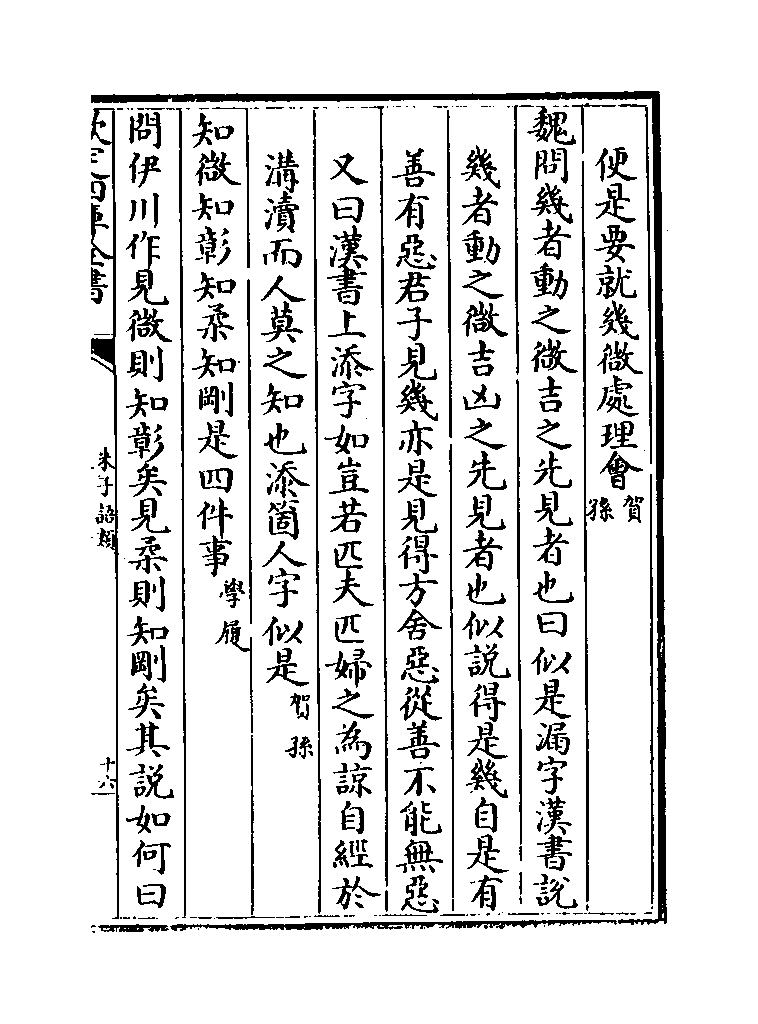 便是要就幾微處理會賀孫
魏問幾者動之微吉之先見者也曰似是漏字漢書說
幾者動之微吉凶之先見者也似説得是幾自是有
善有惡君子見幾亦是見得方舍惡從善不能無惡
又曰漢書上添字如豈若匹夫匹婦之為諒自經於
溝瀆而人莫之知也添箇人字似是賀孫
知微知彰知柔知剛是四件事學履
問伊川作見微則知彰矣見柔則知剛矣其説如何曰
欽定四庫全書
朱子語類
十六